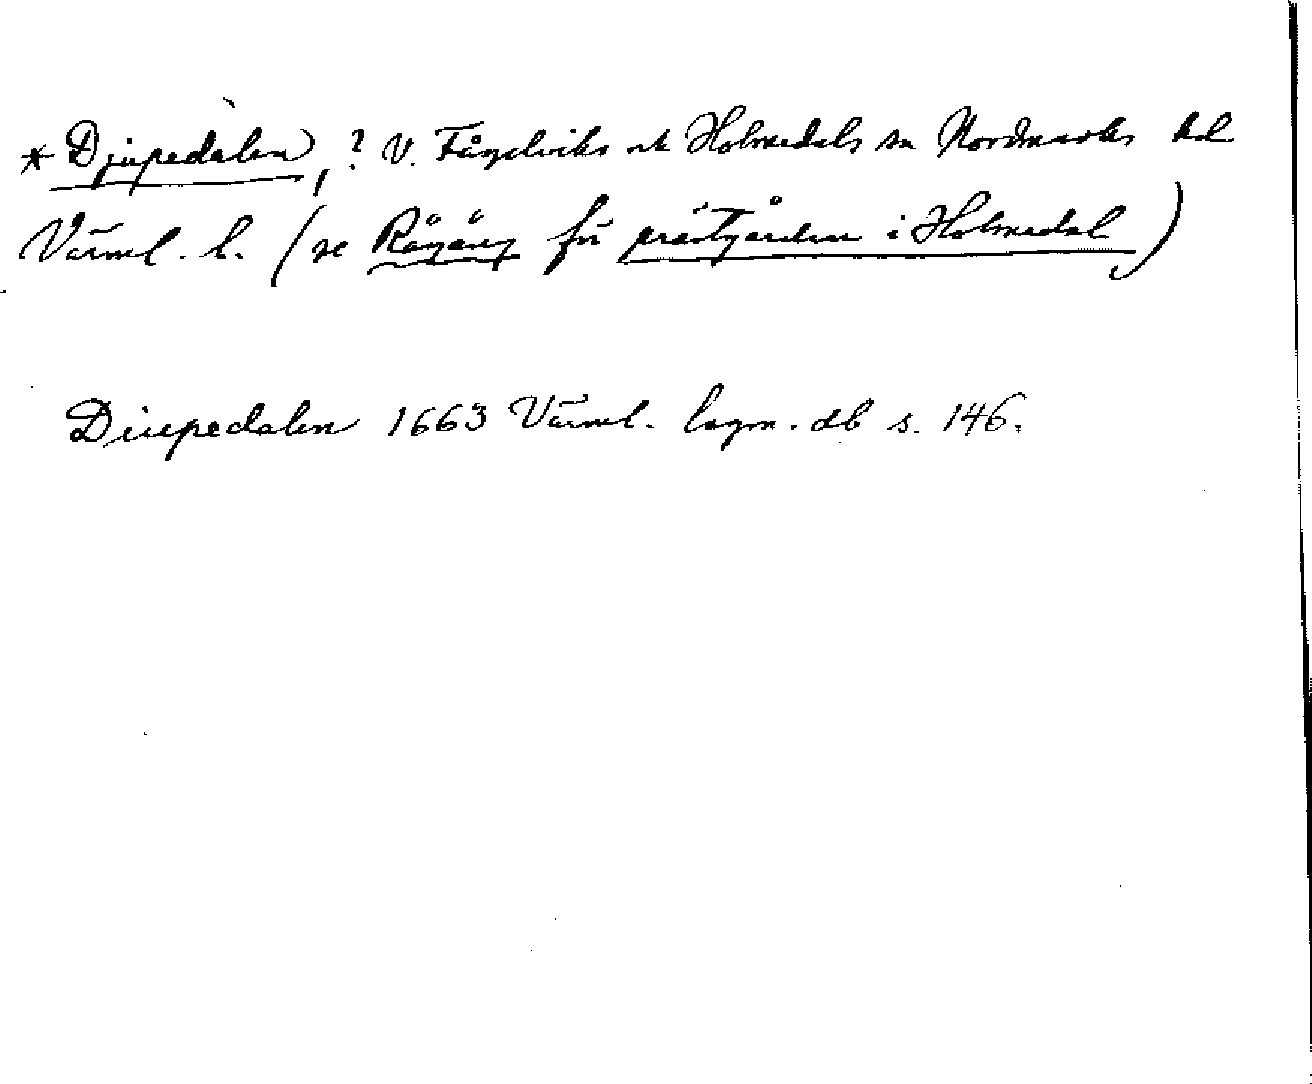 * Djupedalen, ? V. Fågelviks sk Holmedals sn Nordmarks hd
Värml. l. (se Rågång för prästgården i Holmedal)
Diupedalen 1663 Värml. lagm. db s. 146.